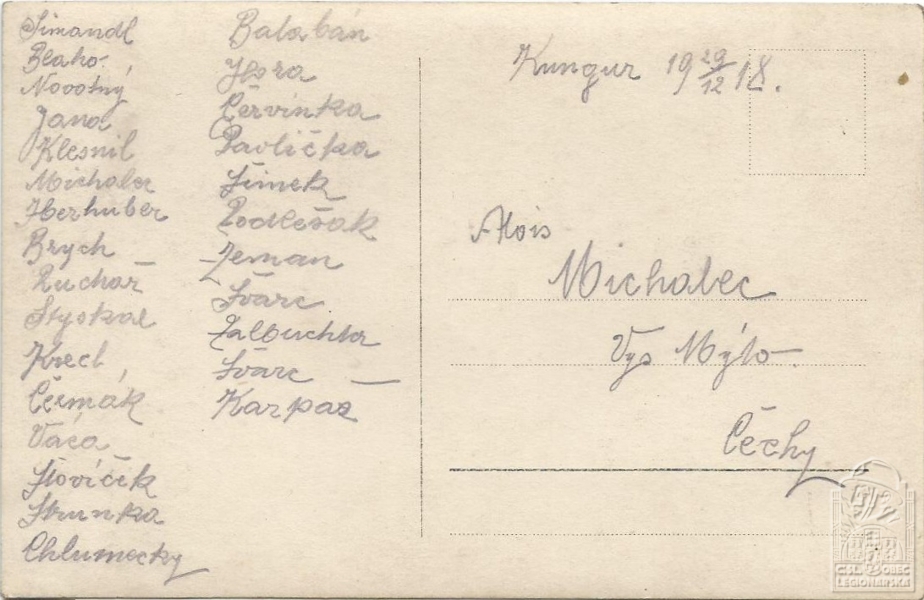 Šimandl
Blaho.
Novotný
Jana
Klesnil
Michalec
Herhuber
Brych
Puchař
Styskal
Krecl
Čermák
Váca
Šťovíček
Strunka
Chlumecky
Balabán
Hora
Červinka
Pavlička
Šimek
Podlešák
Zeman
Švarc
Zalbuchta
Švarc
Karpaš
Kungur 19 29/12 18.
Alois
Michalec
Vys Mýto
Čechy
ČSL. OBEC
LEGIONÁŘSKÁ